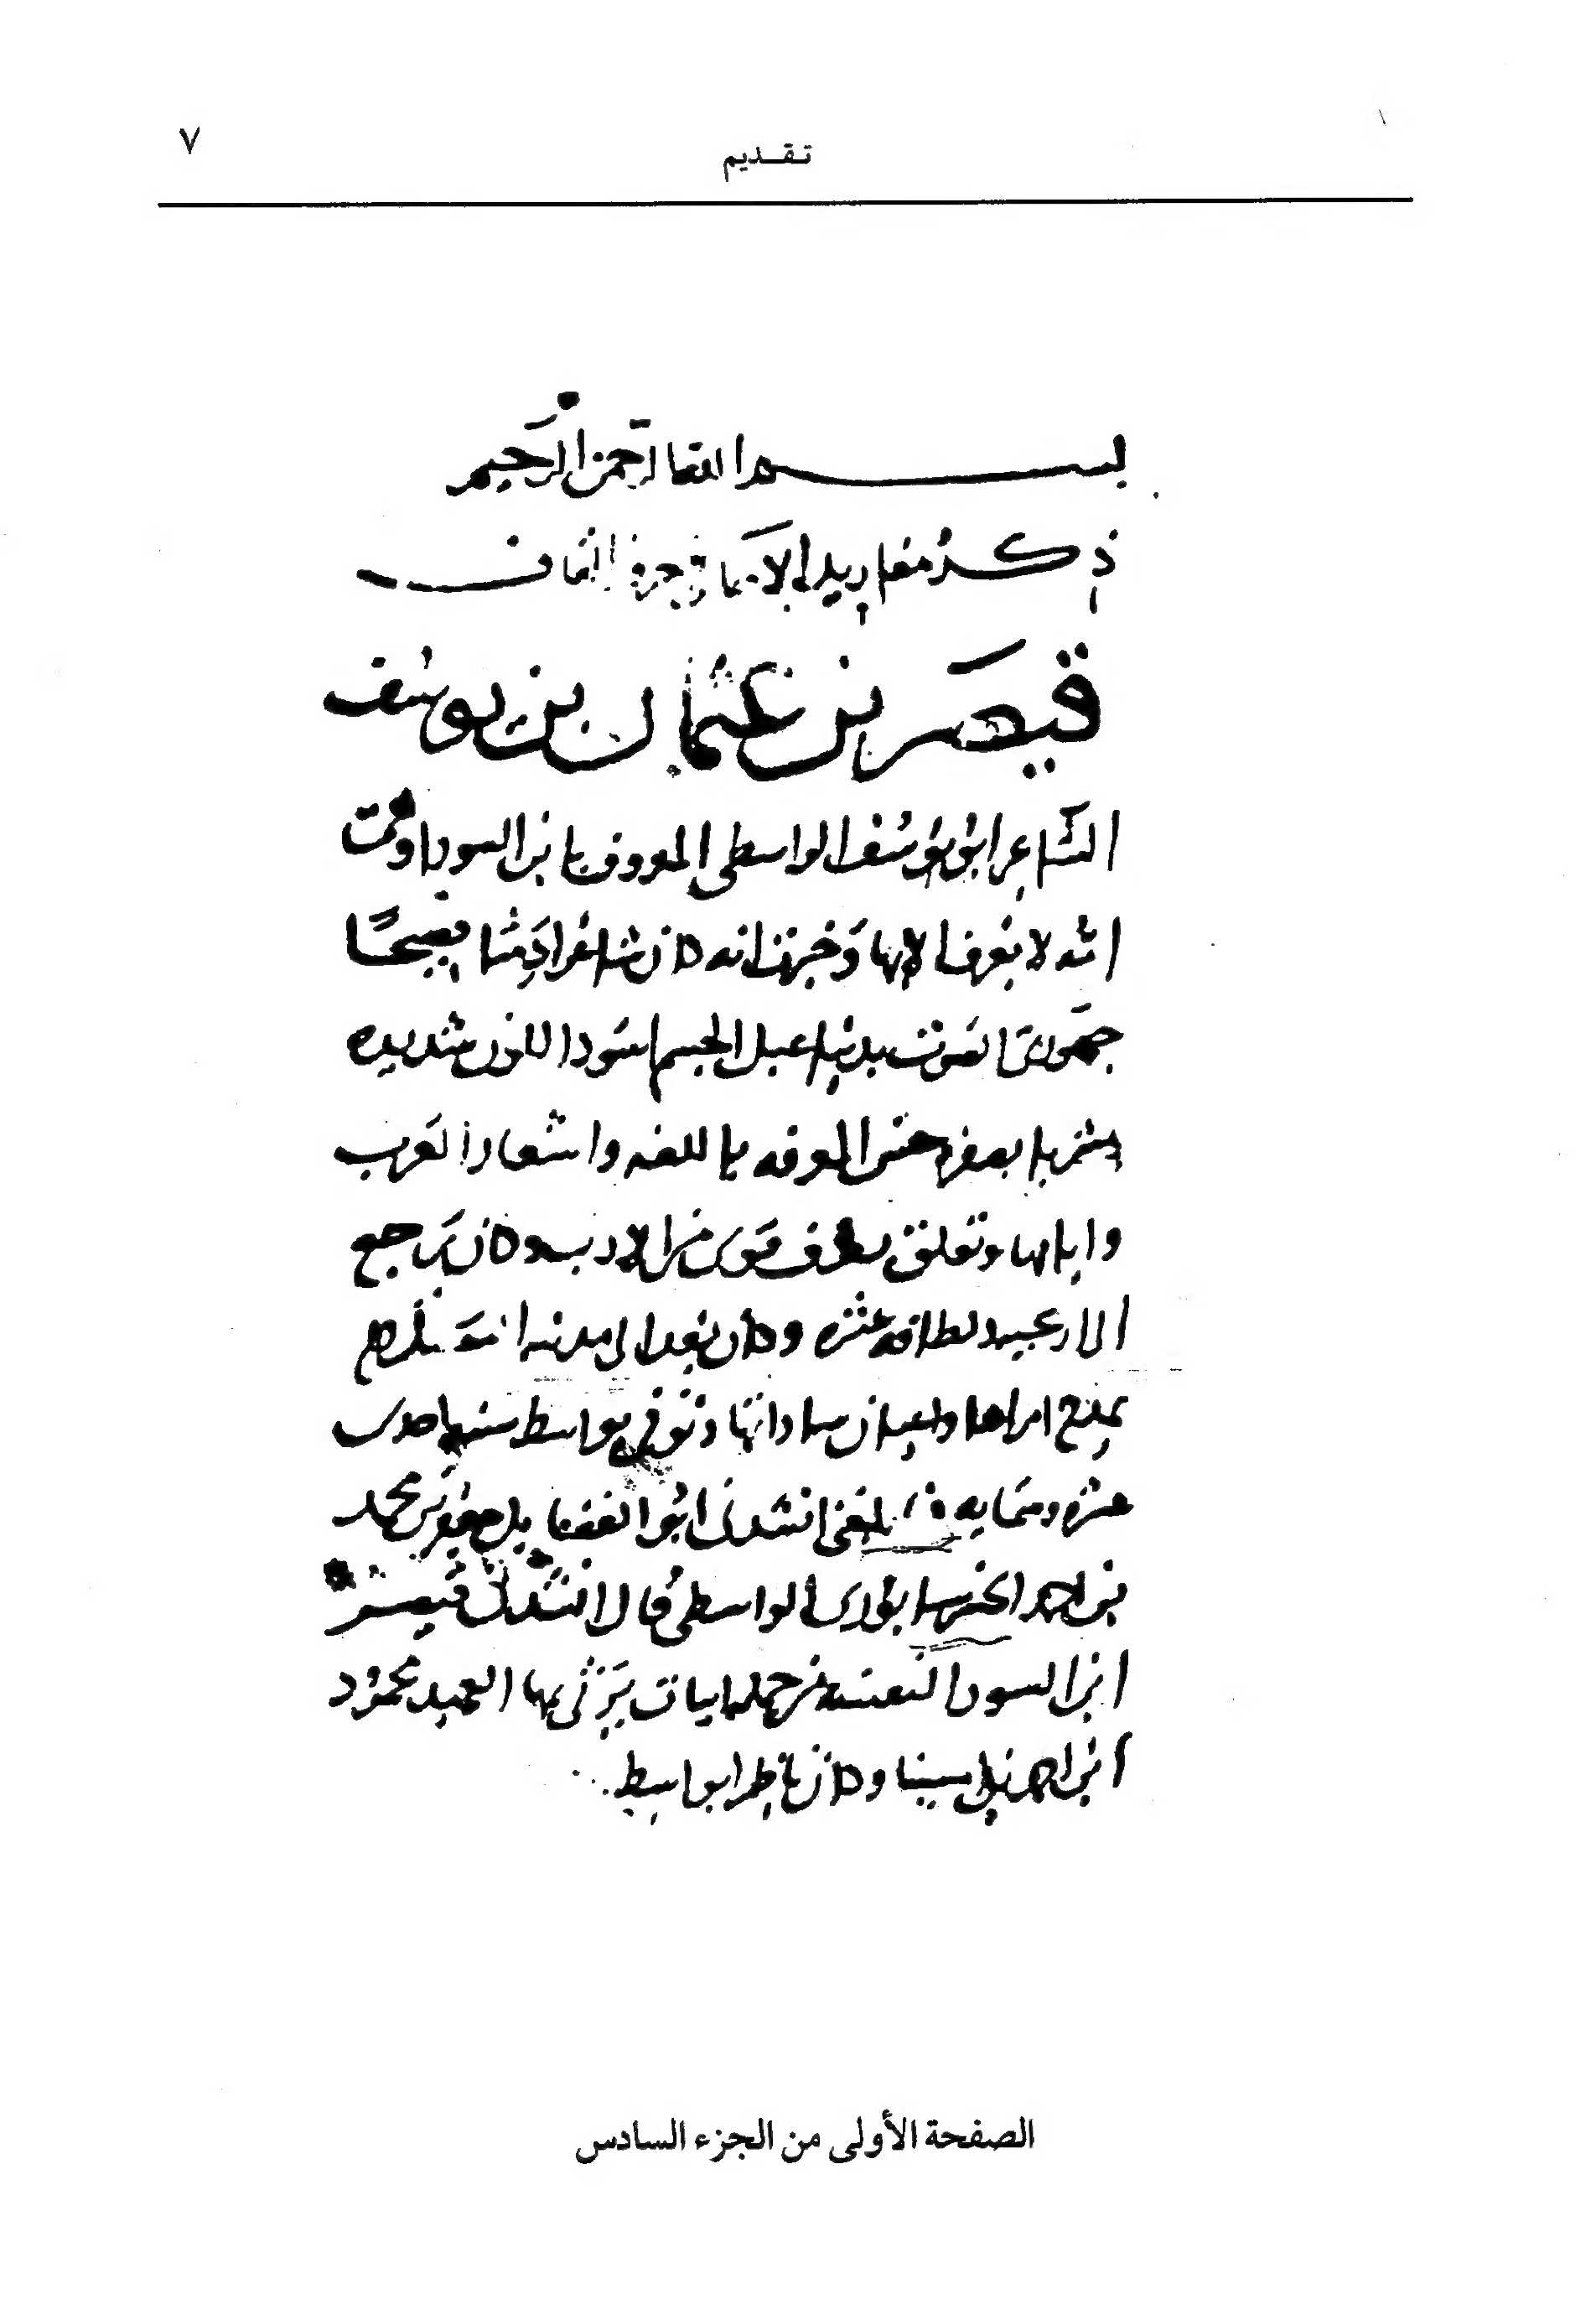 ٧
تقديم
بسم الله الرحمن الرحيم
ذكر مفاريد الأسماء في حرف القاف
قيصر بن عثمان بن يوسف
الشاعر ابو يوسف الواسطي المعروف بابن السودا وكانت
امه لا يعرف الا بها وخبرت انه كان شاعرا اديبا فصيحا
جهوري الصوت بدينا عبل الجسم اسود اللون شديده
حسن المعرفه باللغه واشعار العرب
وايامها وتعلق بطرف قوي من الادب وكان يراجع
الى لطافه عشره وكان يفد الى مدينه
يمدح امراها واعيان ساداتها وتوفي بواسط سنه احدى
عشره وستمايه انشدني ابو الفضايل جعفر بن محمد
بن احمد الواسطي قال انشدني قيصر
ابن السودا لنفسه من جمله ابيات يرثي بها العميد محمود
ابن احمد بن سينا وكان ناظرا بواسط
الصفحة الأولى من الجزء السادس